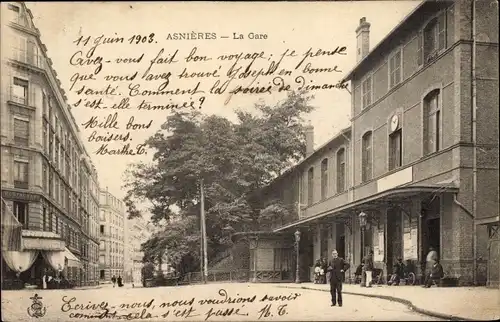 11 juin 1903.
ASNIÈRES — La Gare
Avez-vous fait bon voyage; je pense
que vous avez trouvé Joseph en bonne
santé. Comment la soirée de dimanche
s'est-elle terminée?
Mille bons
baisers.
Marthe
Écrivez-nous, nous voudrions savoir
comment cela s'est passé. M. C.